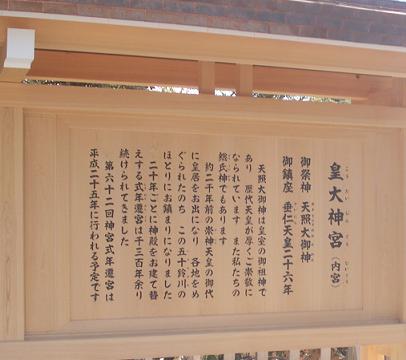 皇大神宮(内宮)
こう たい じん ぐう ないくう
御祭神 天照大御神
御鎮座 垂仁天皇二十六年
天照大御神は皇室の御祖神で
あり 歴代天皇が厚くご崇敬に
なられています また私たちの
総氏神でもあります
約二千年前の崇神天皇の御代
に皇居をお出になり 各地をめ
ぐられたのち この五十鈴川の
ほとりにお鎮まりになりました
二十年ごとに神殿をお建て替
えする式年遷宮は千三百年余り
続けられてきました
第六十二回神宮式年遷宮は
平成二十五年に行われる予定です